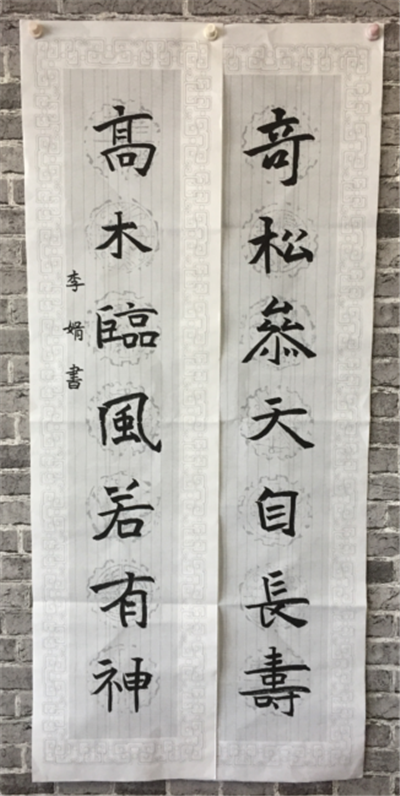 奇松叅天自長壽
髙木臨風若有神
李娟書